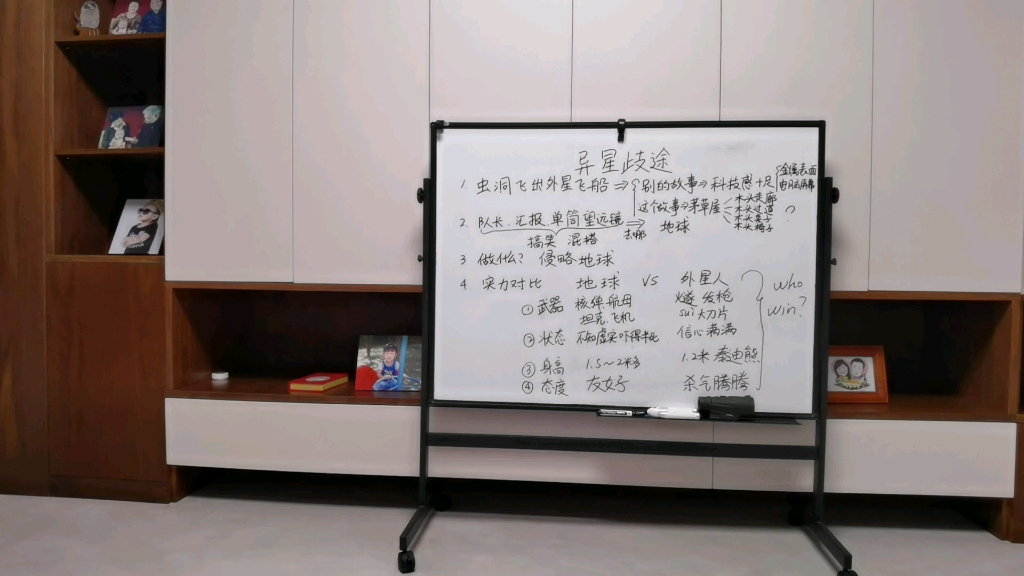 异星歧途
1. 虫洞飞出外星飞船 ⇒ 别的故事 → 科技感十足 金属表面
电脑屏幕
这个故事 → 茅草屋 木头走廊
木头过道
木头桌子
木头椅子 ?
2. 队长、汇报、单筒望远镜 ⇒ 去哪 地球
搞笑 混搭
3 做什么? 侵略地球
4 实力对比 地球 VS 外星人 who win?
①武器 核弹 航母 燧发枪
坦克、飞机 sui 大刀片
②状态 不知虚实吓得半死 信心满满
③身高 1.5~2米多 1.2米 泰迪熊
④态度 友好 杀气腾腾